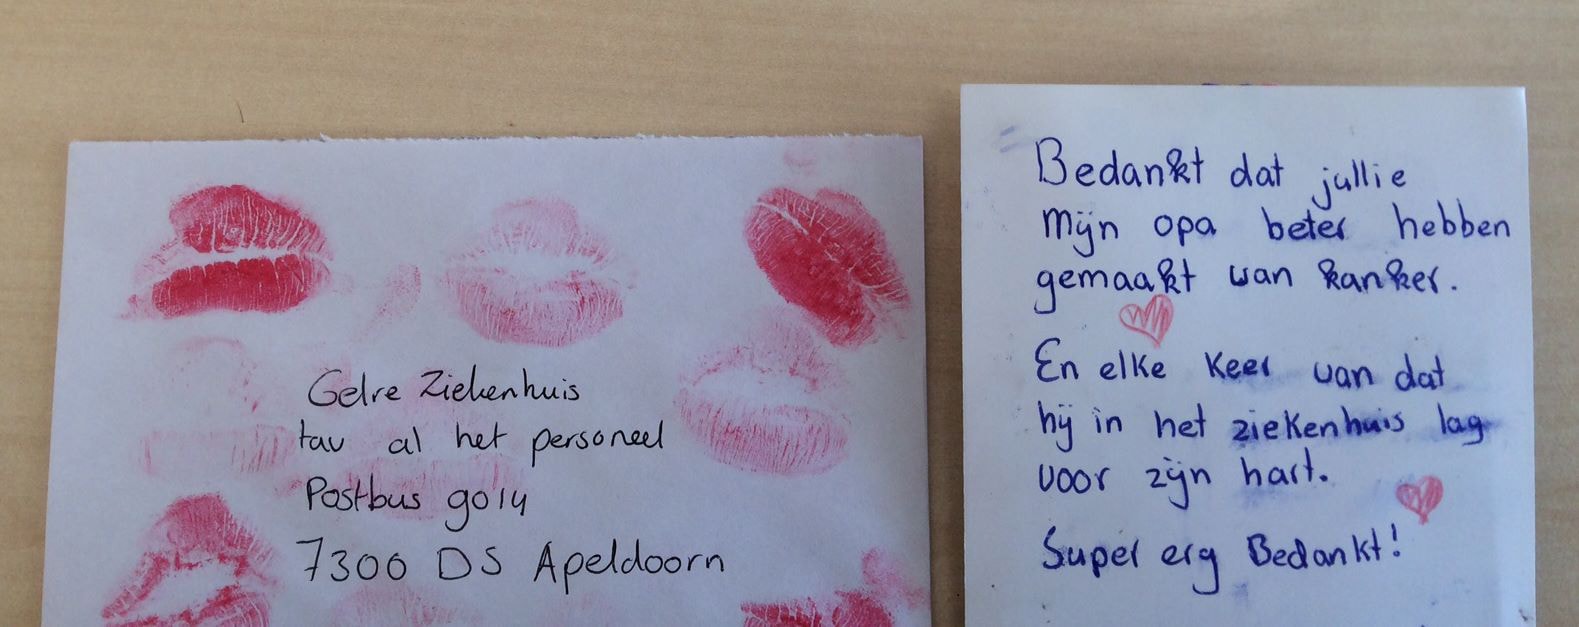 Gelre Ziekenhuis
tav al het personeel
Postbus 9014
7300 DS Apeldoorn
Bedankt dat jullie
Mijn opa beter hebben
gemaakt van kanker.
En elke keer van dat
hij in het ziekenhuis lag
voor zijn hart.
Super erg Bedankt!